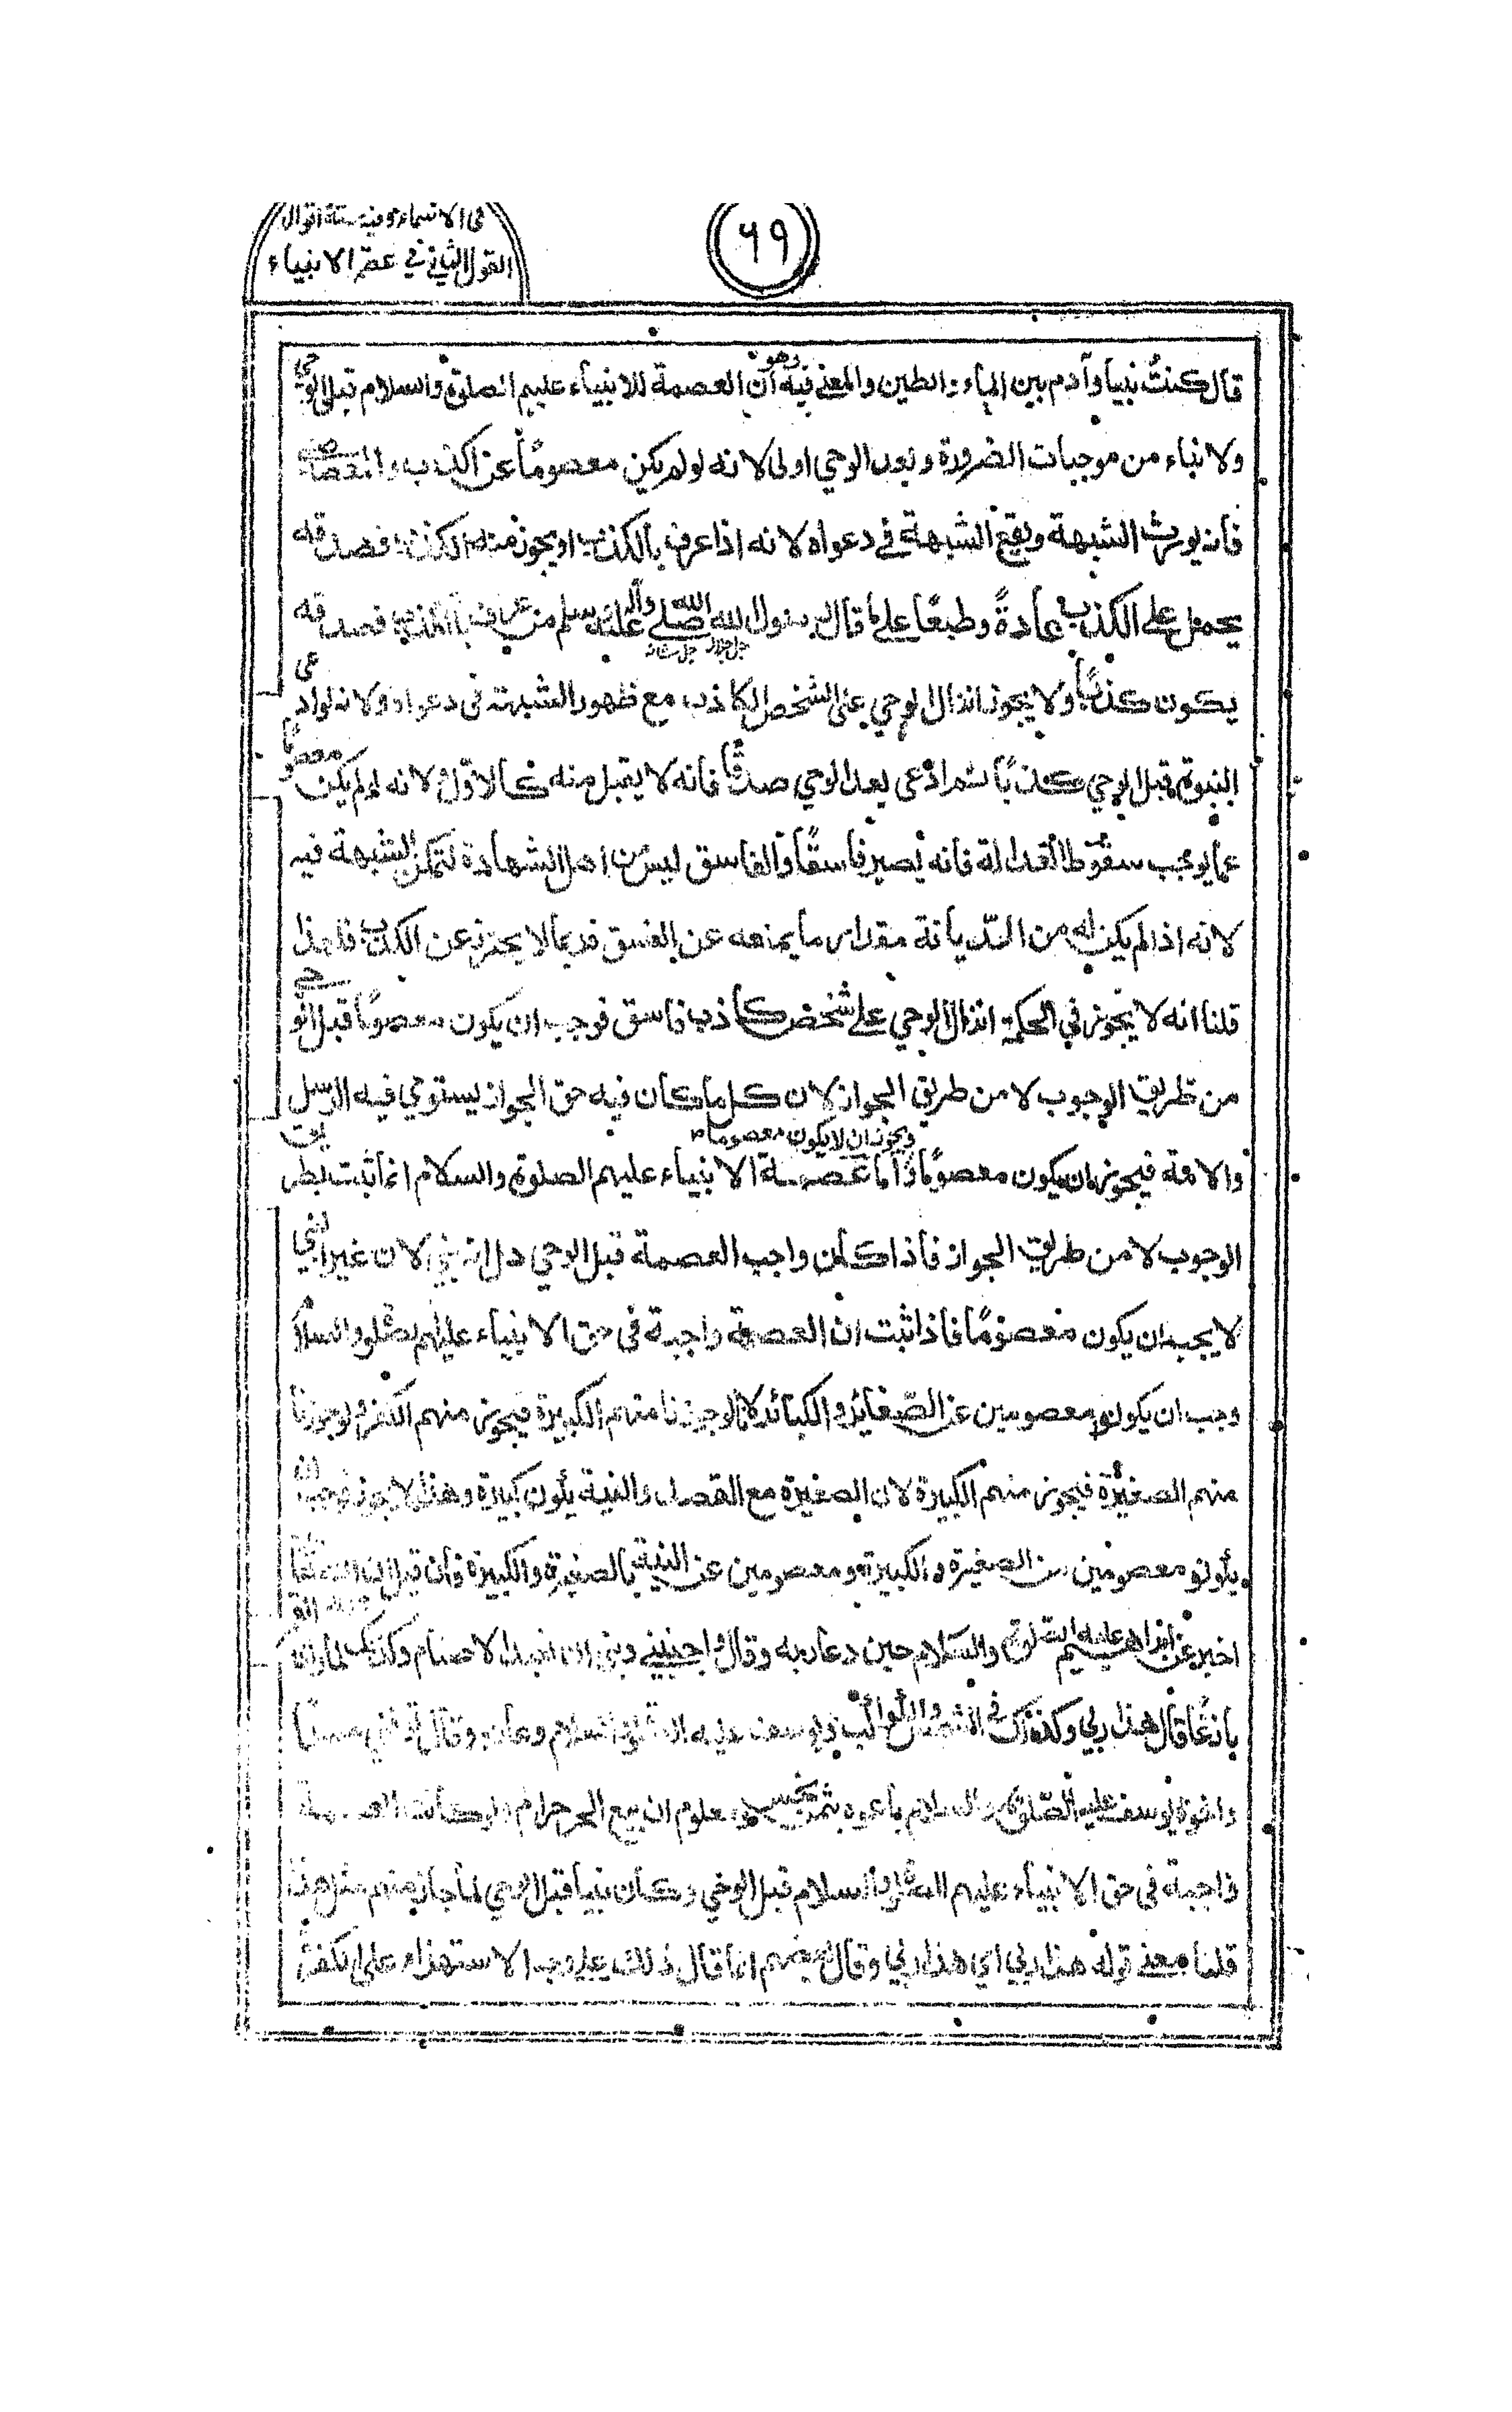 في الانبياء وفيه ستة اقوال
القول الثاني في عصمة الانبياء
٦٩
قال كنتُ نبيا وآدم بين الماء والطين والمعنى فيه وهو ان العصمة للانبياء عليهم الصلوة والسلام قبل الوحي
ولانباء من موجبات الضرورة وبعد الوحي اولى لانه لو لم يكن معصومًا عن الكذب والمعصية
فانه يورث الشبهة ويقع الشبهة في دعواه لانه اذا عرف بالكذب او يجوز منه الكذب فصدقه
يحمل على الكذب عادةً وطبعًا على ما قال رسول الله جل جلاله جل شانه صلى الله عليه وآله وسلم من عرف بالكذب فصدقه
يكون كذبًا ولا يجوز انزال الوحي على الشخص الكاذب مع ظهور الشبهة في دعواه ولانه لو ادعى
النبوة قبل الوحي كذبًا ثم ادعى بعد الوحي صدقًا فانه لا يقبل منه كالاول ولانه لو لم يكن معصومًا
عما يوجب سقوط العدالة فانه يصير فاسقًا والفاسق ليس من اهل الشهادة لتمكن الشبهة فيه
لانه اذا لم يكن له من الدّيانة مقدار ما يمنعه عن الفسق فربما لا يحجزه عن الكذب فلهذا
قلنا انه لا يجوز في الحكمة انزال الوحي على شخص كاذب فاسق فوجب ان يكون معصومًا قبل الوحي
من طريق الوجوب لا من طريق الجواز لان كل ما كان فيه حق الجواز يستوي فيه الرسل
والامة فيجوز ان يكون معصومًا ويجوز ان لا يكون معصوما واما عصمة الانبياء عليهم الصلوة والسلام انما ثبت بطريق
الوجوب لا من طريق الجواز فاذا كان واجب العصمة قبل الوحي دل انه نبي لان غير النبي
لا يجب ان يكون معصومًا فاذا ثبت ان العصمة واجبة في حق الانبياء عليهم الصلوة والسلام
وجب ان يكونوا معصومين عن الصّغائر والكبائر لانا لو جوزنا منهم الكبيرة فيجوز منهم الكفر ولو جوزنا
منهم الصغيرة فيجوز منهم الكبيرة لان الصغيرة مع القصد والنية يكون كبيرة وهذا لا يجوز فوجب ان
يكونو معصومين من الصغيرة والكبيرة ومعصومين عن النية بالصغيرة والكبيرة فان قيل ان الله تعالى
اخبر عن ابراهيم عليه الصلوة والسّلام حين دعا ربه وقال واجنبني وبني ان نعبد الاصنام وكذلك لما راى القمر
بازغًا قال هذا ربي وكذلك في الشمس والكوكب ويوسف عليه الصلوة والسلام دعا ربه وقال توفني مسلمًا
واخوة يوسف عليه الصّلوة والسلام باعوه بثمن بخس ومعلوم ان بيع الحر حرام ولو كانت العصمة
واجبة في حق الانبياء عليهم الصلوة والسلام قبل الوحي وكان نبيا قبل الوحي لما جاز منهم مثل هذا
قلنا معنى قوله هذا ربي اي هذا ربي وقال بعضهم انما قال ذلك على وجه الاستهزاء على الكفرة